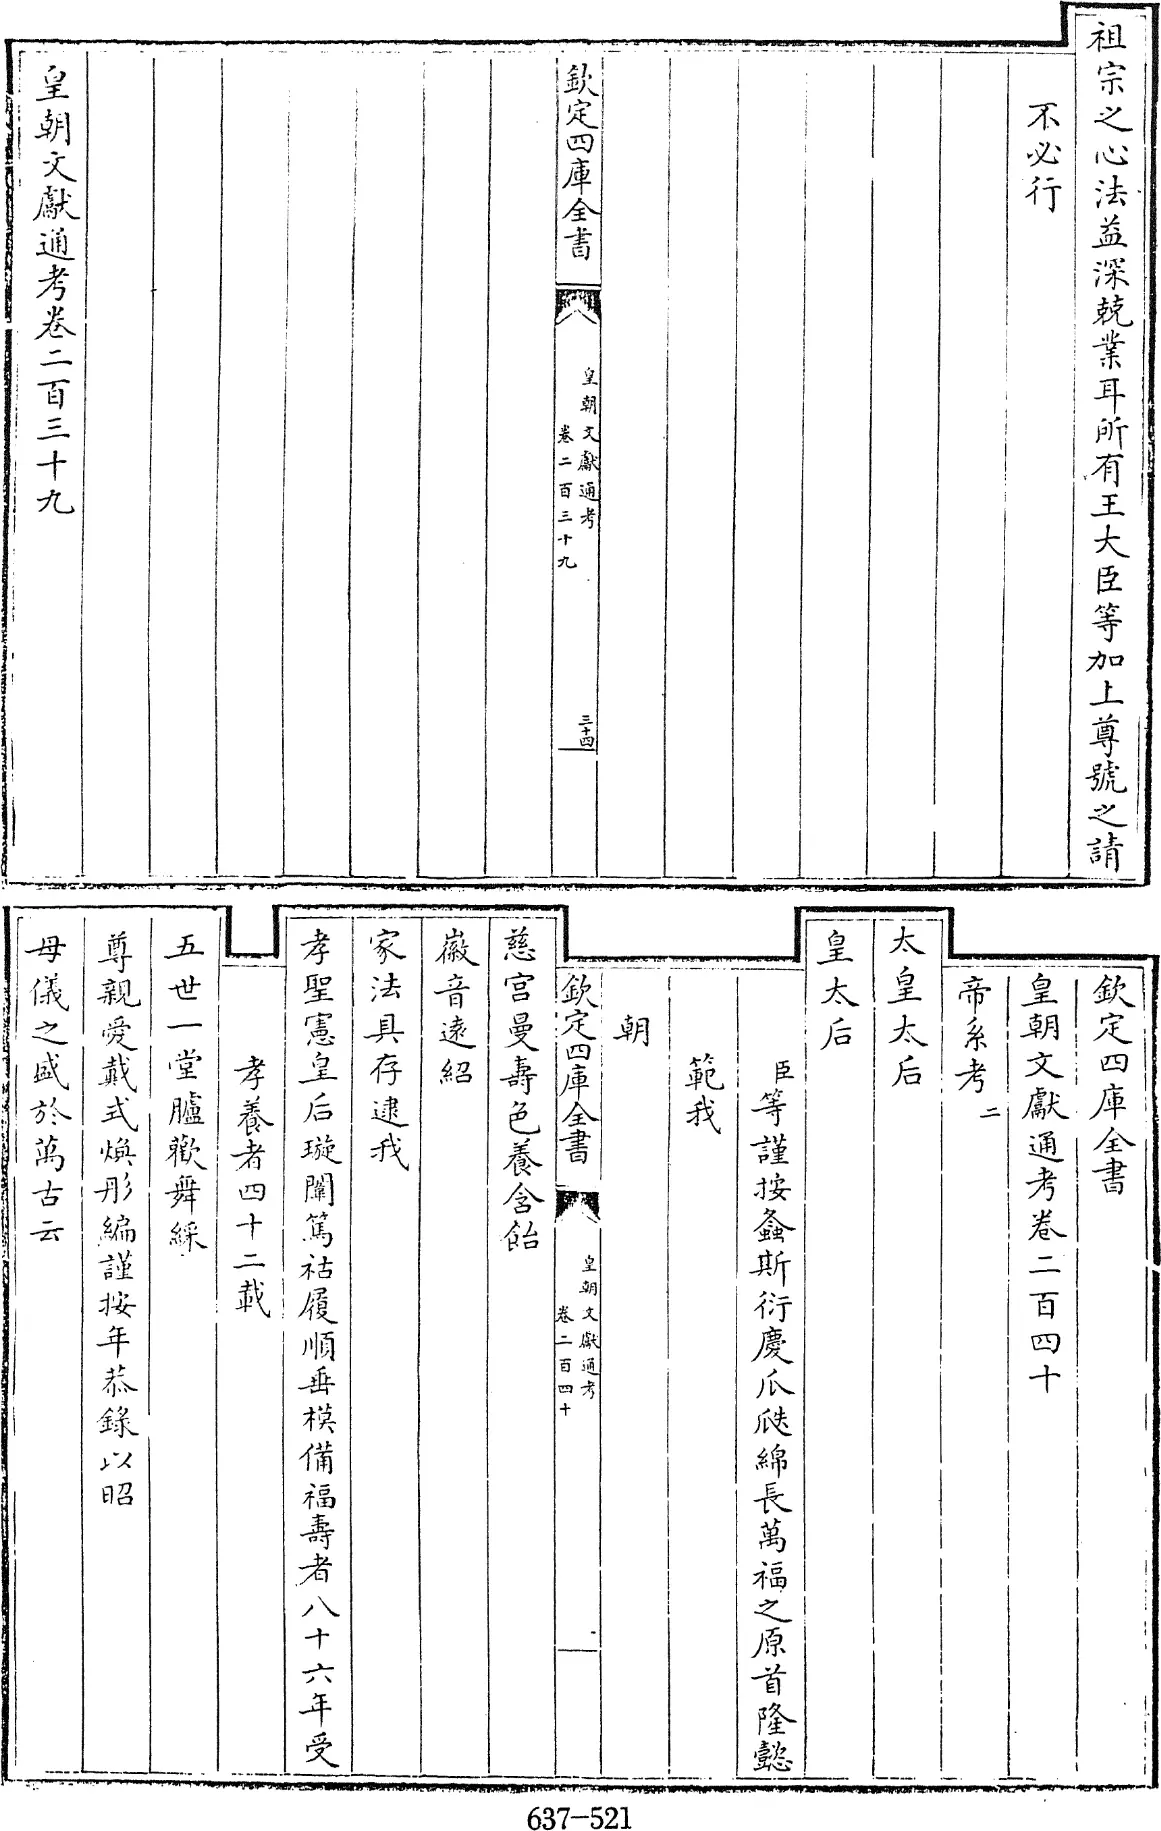 祖宗之心法益深兢業耳所有王大臣等加上尊號之請
不必行
欽定四庫全書
皇朝文獻通考
卷二百三十九
三十四
皇朝文獻通考卷二百三十九
欽定四庫全書
皇朝文獻通考卷二百四十
帝系考二
太皇太后
皇太后
臣等謹按螽斯衍慶瓜瓞綿長萬福之原首隆懿
範我
朝
欽定四庫全書
皇朝文獻通考
卷二百四十
一
慈宮曼壽色養含飴
徽音遠紹
家法具存逮我
孝聖憲皇后璇闈篤祜履順垂模備福壽者八十六年受
孝養者四十二載
五世一堂臚歡舞綵
尊親愛戴式煥彤編謹按年恭錄以昭
母儀之盛於萬古云
637-521